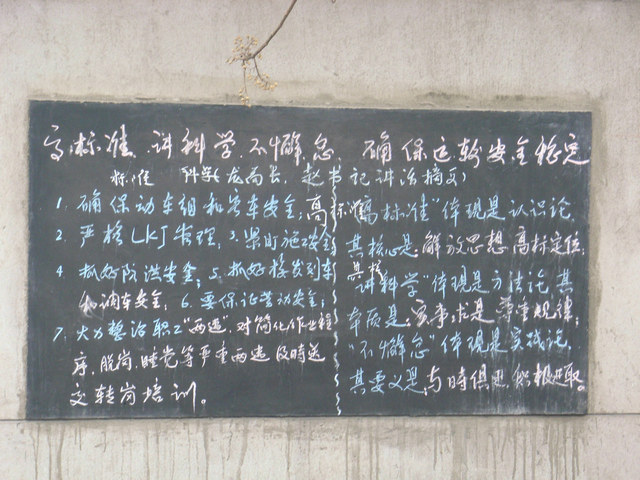 高标准、讲科学、不懈怠、确保运输安全稳定
标准 科学 (龙局长、赵书记讲话摘要)
1. 确保动车组和客车安全; 高标准
2. 严格LKJ管理, 3. 紧盯施工安全
4 抓好防洪安全; 5. 抓好接发列车
和调车安全; 6. 要保证劳动安全;
7. 大力整治职工"两违", 对简化作业程
序、脱岗、睡觉等严重两违及時送
交转岗培训。
"高标准"体现是认识论,
其核心是解放思想 高标定位;
其核
"讲科学"体现是方法论, 其
本质是实事求是 尊重规律;
"不懈怠"体现是实践论,
其要义是与時俱进、积极进取。